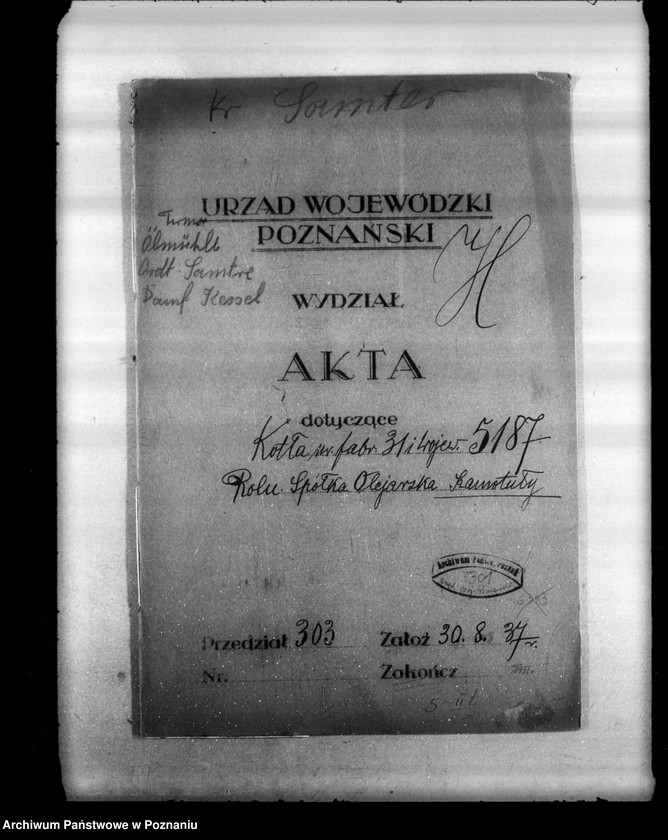 Kr Samter
URZĄD WOJEWÓDZKI
POZNAŃSKI
H
Ölmühle
Samtre
Dampf Kessel
WYDZIAŁ
AKTA
dotyczące
Kotła nr. fabr. 31 i wojew. 5187
Roln. Spółka Olejarska Szamotuły
Archiwum Państw. Poznań
1301
Przedział 303
Założ 30. 8. 37 r.
Nr.
Zakończ 1937.
Archiwum Państwowe w Poznaniu